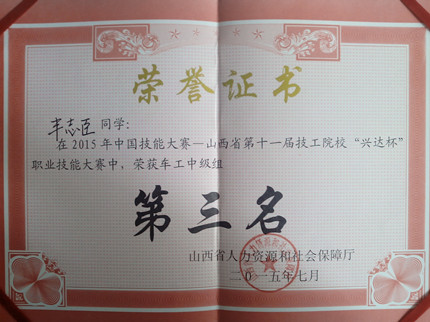 荣誉证书
丰志臣 同学：
在2015年中国技能大赛—山西省第十一届技工院校“兴达杯”
职业技能大赛中，荣获车工中级组
第三名
山西省人力资源和社会保障厅
二〇一五年七月